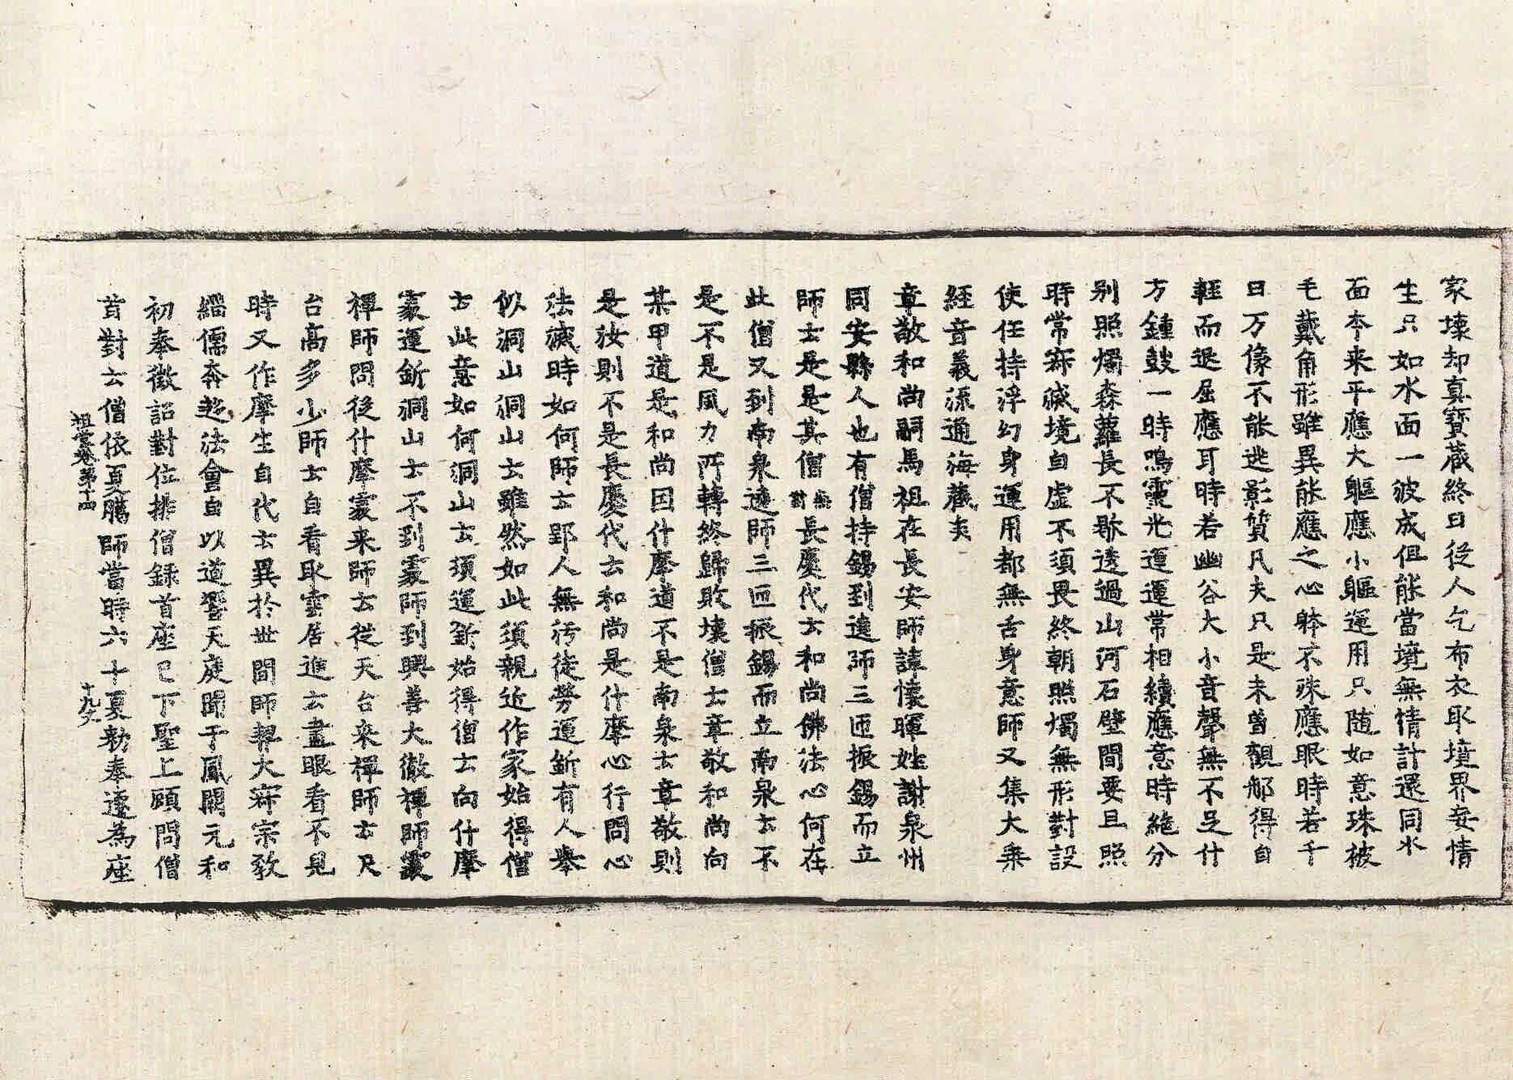 家壞却真寶蔵終日從人乞布衣取境界妄情
生只如水面一波成但能當境無情計還同水
面本来平應大軀應小軀運用只随如意珠被
毛戴角形雖異能應之心躰不殊應眼時若千
日万像不能迯影質凡夫只是未曽觀郍得自
輕而退屈應耳時若幽谷大小音聲無不足什
方鍾鼓一時鳴靈光運運常相續應意時絶分
别照燭森蘿長不歇透過山河石壁間要且照
時常寂滅境自虚不須畏終朝照燭無形對設
使任持浮幻身運用都無舌身意師又集大乗
經音義流通海蔵矣
章敬和尚嗣馬祖在長安師諱懷暉姓謝泉州
同安縣人也有僧持錫到遶師三匝振錫而立
師云是是其僧無對長慶代云和尚佛法心何在
此僧又到南泉遶師三匝振錫而立南泉云不
是不是風力所轉終歸敗壞僧云章敬和尚向
某甲道是和尚因什摩道不是南泉云章敬則
是汝則不是長慶代云和尚是什摩心行問心
法滅時如何師云郢人無污徒勞運斤有人舉
似洞山洞山云雖然如此須親近作家始得僧
云此意如何洞山云須運斤始得僧云向什摩
處運斤洞山云不到處師到興善大徹禪師處
禪師問從什摩處来師云從天台来禪師云天
台高多少師云自看取雲居進云盡眼看不見
時又作摩生自代云異於世間師契大寂宗教
緇儒奔趍法會自以道響天庭聞于鳳闕元和
初奉徵詔對位排僧録首座已下聖上顧問僧
首對云僧依夏臘師當時六十夏勑奉遷為座
祖堂卷第十四
十九丈